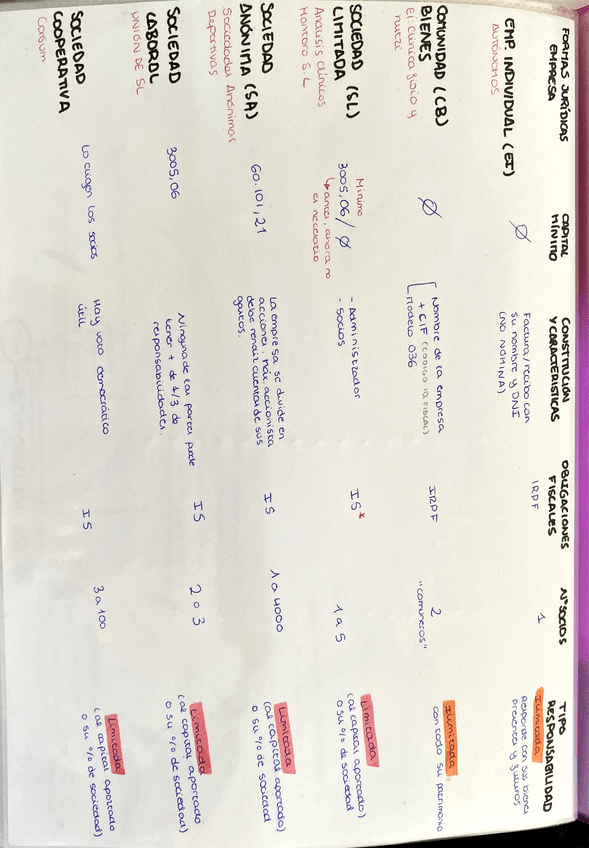 FORMAS JURÍDICAS
EMPRESA
CAPITAL
MÍNIMO
CONSTITUCIÓN
Y CARACTERÍSTICAS
OBLIGACIONES
FISCALES
Nº SOCIOS
TIPO
RESPONSABILIDAD
EMP. INDIVIDUAL (EI)
AUTÓNOMOS
Ø
Factura/recibo con
su nombre y DNI
(NO NÓMINA)
IRPF
1
Ilimitada
Responde con sus bienes
presentes y futuros
COMUNIDAD (CB)
BIENES
Ej: Clínica fisio y
nutri
Ø
Nombre de la empresa
+ CIF (CÓDIGO ID FISCAL)
Modelo 036
IRPF
2
"comuneros"
Ilimitada
con todo su patrimonio
SOCIEDAD
LIMITADA (SL)
Análisis clínicos
Montoro S.L
Mínimo
3005,06 / Ø
↳ antes, ahora no
es necesario
- Administrador
- Socios
IS*
1 a 5
Limitada
(al capital aportado)
o su % de sociedad
SOCIEDAD
ANÓNIMA (SA)
Sociedades Anónimas
Deportivas
60.101,21
La empresa se divide en
acciones. Máx accionista
debe rendir cuentas de sus
gastos.
IS
1 a 4000
Limitada
(al capital aportado)
o su % de sociedad
SOCIEDAD
LABORAL
UNIÓN DE SL
3005,06
Ninguna de las partes puede
tener + de 1/3 de
responsabilidades.
IS
2 o 3
Limitada
(al capital aportado
o su % de sociedad)
SOCIEDAD
COOPERATIVA
Consum
Lo eligen los socios
Hay voto democrático
útil
IS
3 a 100
Limitada
(al capital aportado
o su % de sociedad)